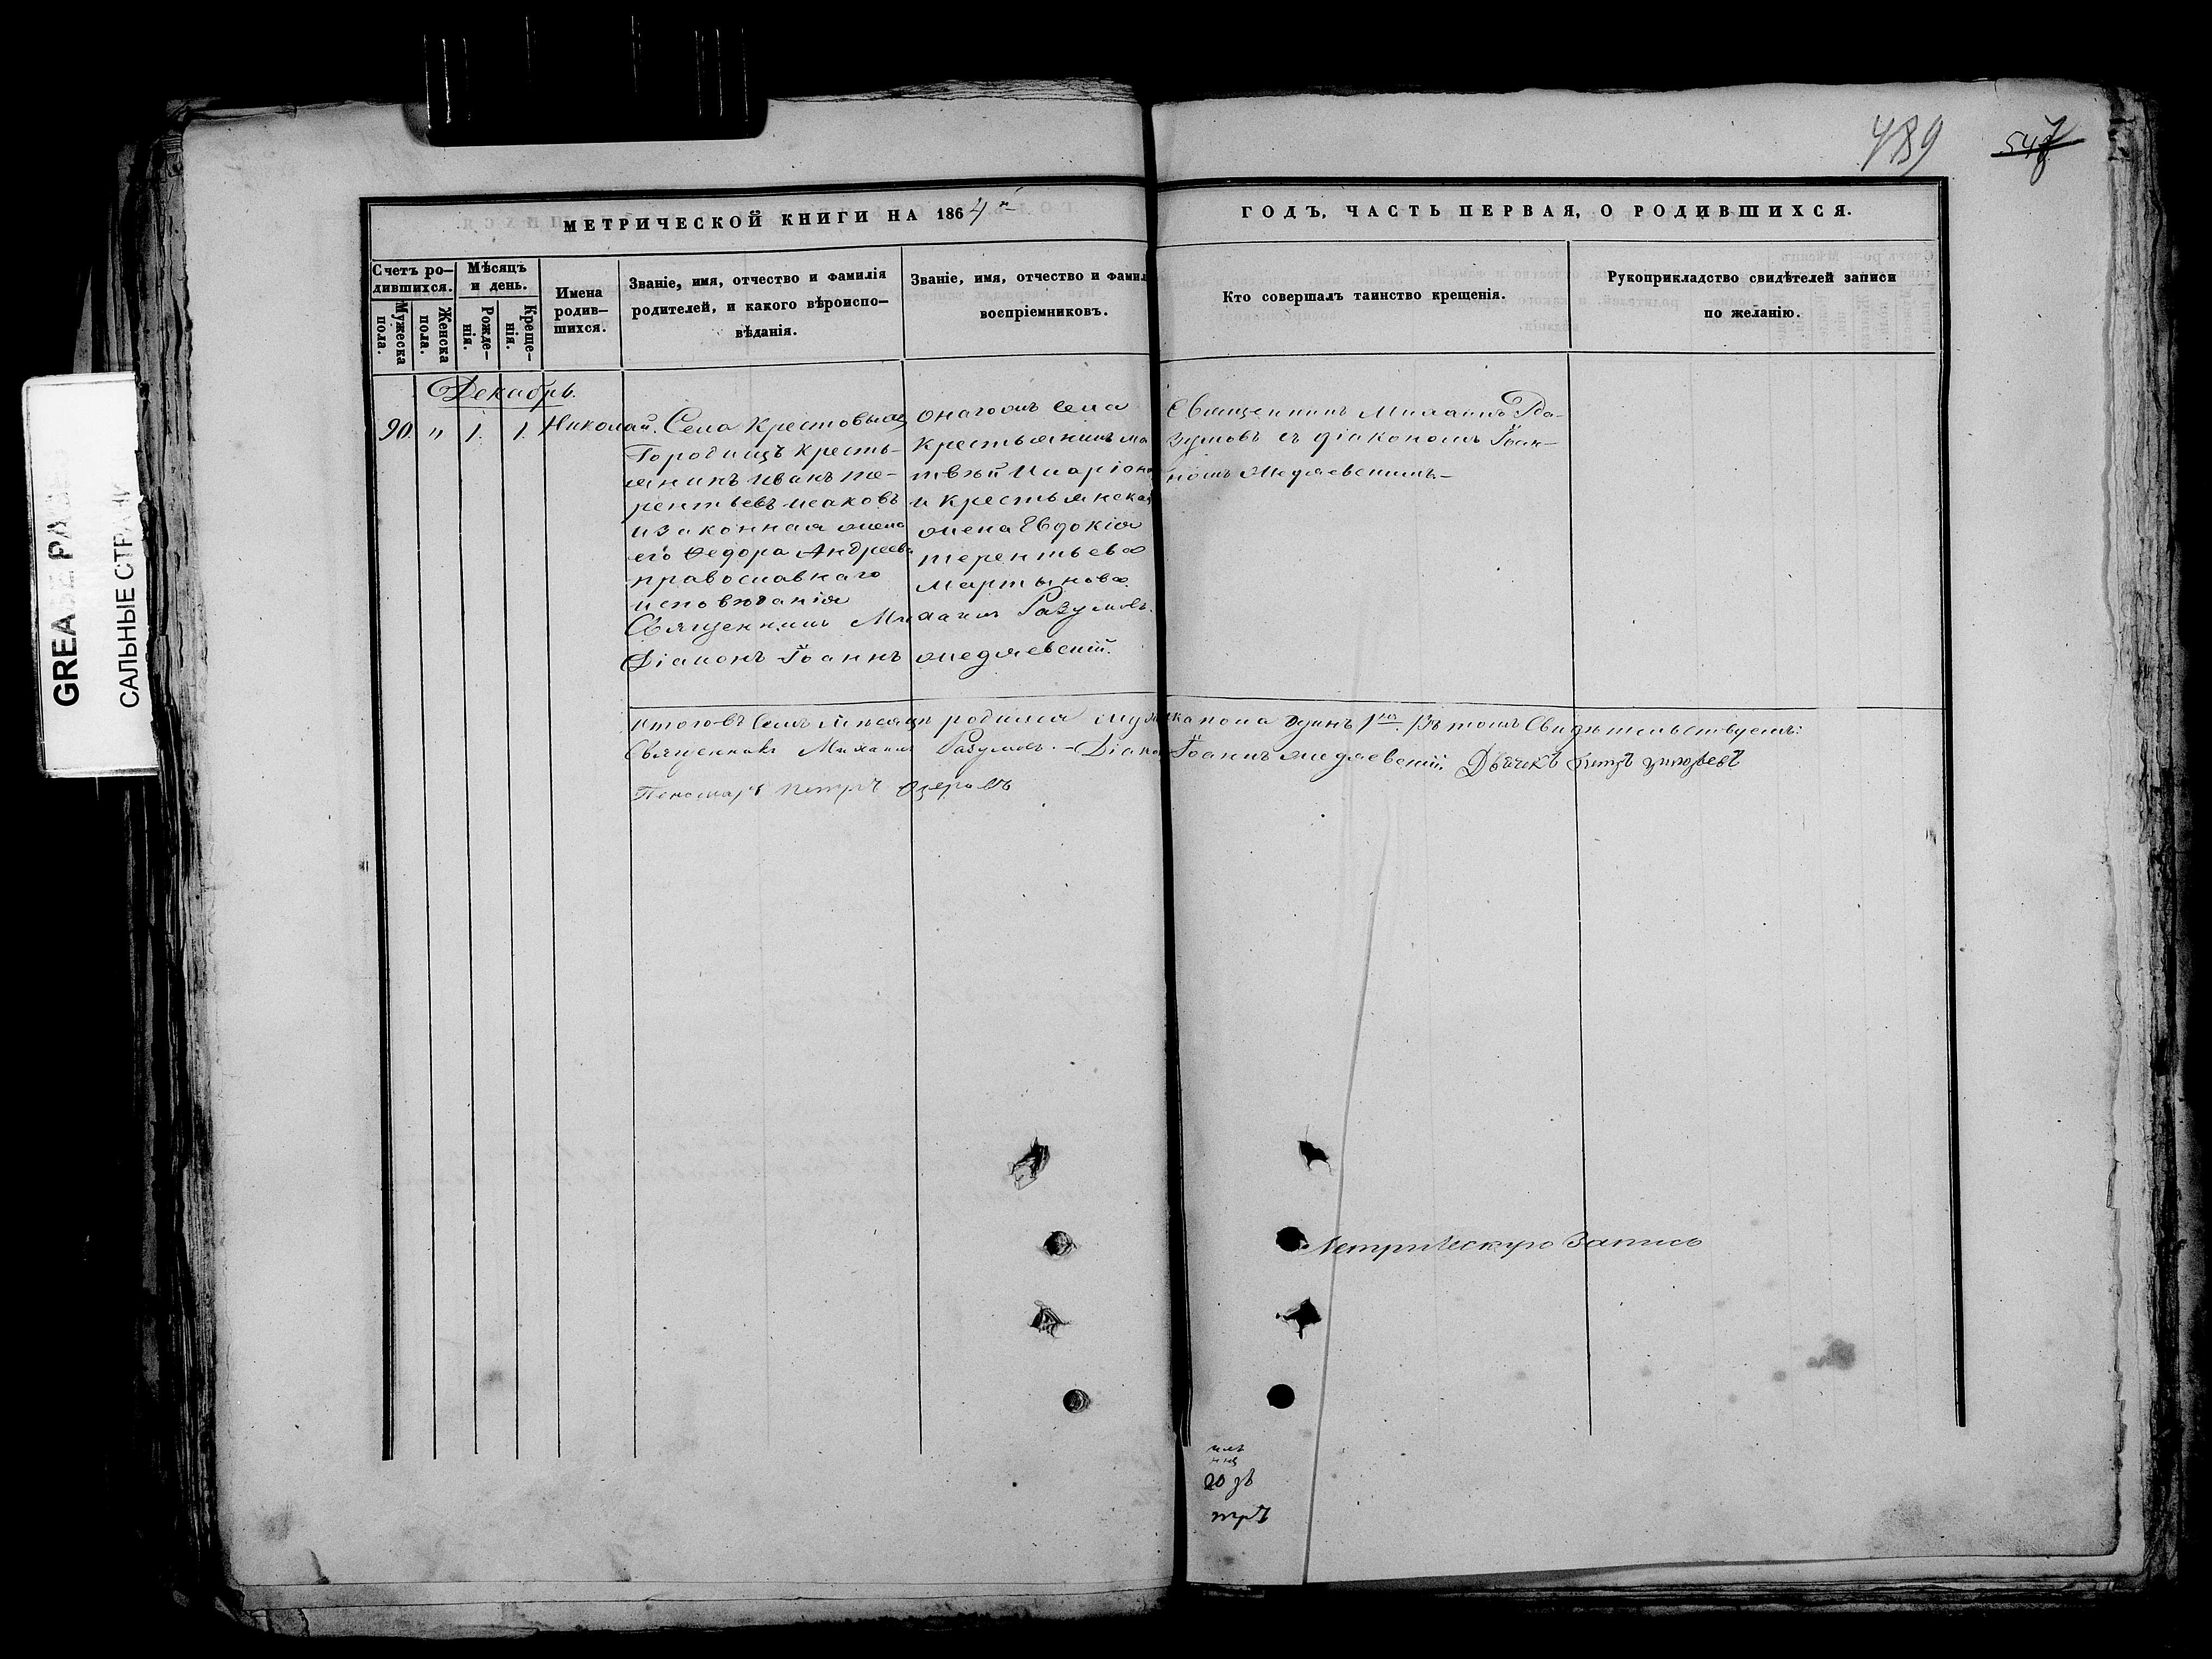 489 547
МЕТРИЧЕСКОЙ КНИГИ НА 1864й ГОДЪ, ЧАСТЬ ПЕРВАЯ, О РОДИВШИХСЯ.
Счетъ ро–
дившихся.
Мужеска
пола.
Женска
пола.
Мѣсяцъ
и день.
Рожде–
нія.
Креще–
нія.
Имена
родив–
шихся.
Званіе, имя, отчество и фамилія
родителей, и какого вѣроиспо–
вѣданія.
Званіе, имя, отчество и фамил
воспріемниковъ.
Кто совершалъ таинство крещенія.
Рукоприкладство свидѣтелей записи
по желанію.
Декабрь.
90. " 1. 1. Николай.
Села Крестовыхъ
Городищъ кресть–
янинъ Иванъ Те–
рентьевъ Исаковъ
и законная жена
его Федора Андреева
православнаго
исповѣданія
онагожъ села
крестьянинъ Ма
твѣй Иларіон
и крестьянская
жена Евдокія
Терентьева
Мартынова.
Священникъ Михаилъ Ра–
зумовъ съ діакономъ Іоан–
номъ Медяевскимъ–
Священникъ Михаилъ Разумовъ.
Діаконъ Іоаннъ Медяевскій.
Итого въ семъ мѣсяцѣ родился мужска пола одинъ 1нъ. Въ томъ свидѣтельствуемъ:
Священникъ Михаилъ Разумовъ. – Діакон Іоаннъ Медяевскій. Дьячекъ
Пономарь Петръ Озеровъ
Метрическую Запись
GREA PA
САЛЬНЫЕ СТРАНИ